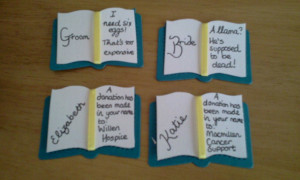 Groom
I
need six
eggs!
That's too
expensive
Bride
A llama?
He's
supposed
to be
dead!
Elizabeth
A
donation has
been made
in your name
to:
Willen
Hospice
Katie
A
donation has
been made
in your name
to:
Macmillan
Cancer
Support